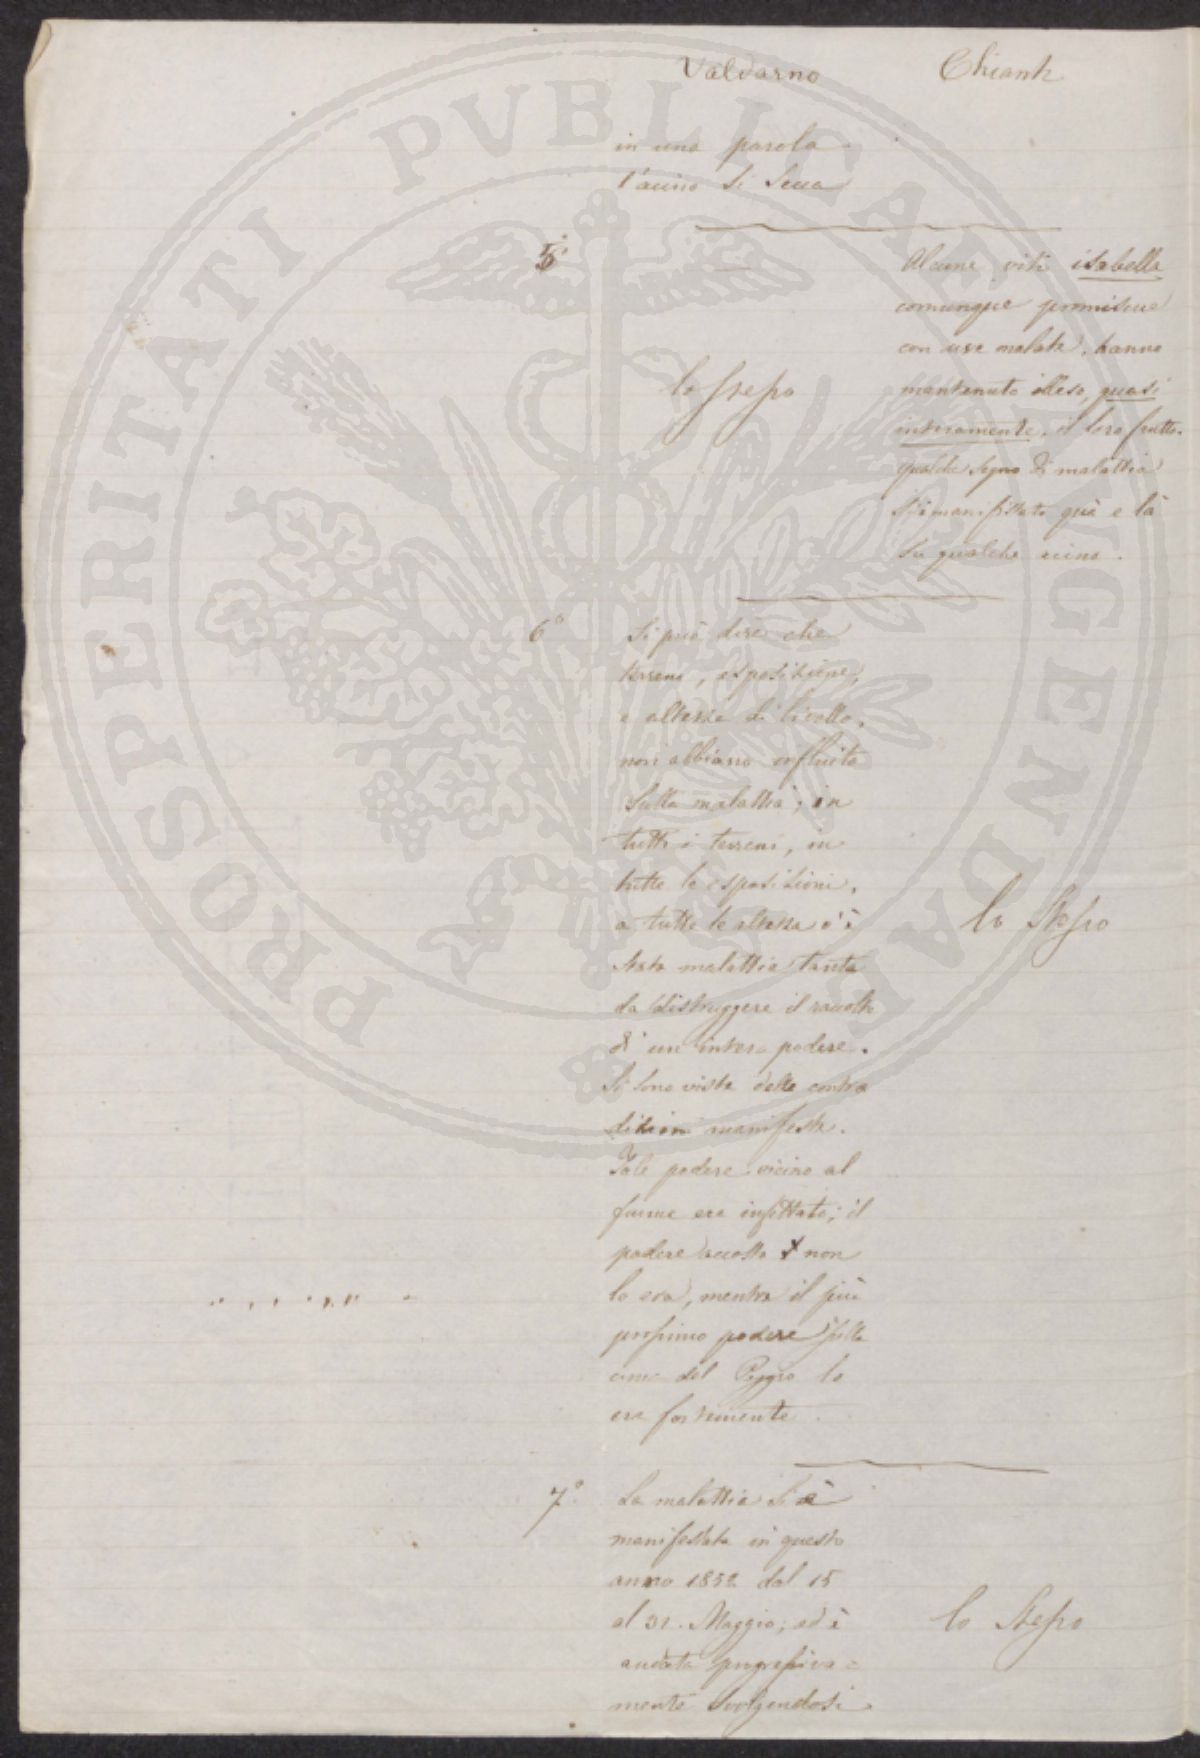 Valdarno
Chianti
in una parola
l'acino si secca
5°
lo stesso
Alcune viti isabella
comunque promiscue
con uve malate, hanno
mantenuto illeso, quasi
interamente, il loro frutto.
Qualche segno di malattia
si è manifestato quà e là
su qualche acino.
6°
Si può dire che
terreni, esposizione,
e altezza di livello,
non abbiano influito
sulla malattia; in
tutti i terreni, in
tutte le esposizioni,
a tutte le altezze v'è
stata malattia tanta
da distruggere il raccolto
di un'intero podere.
Si sono viste delle contra
dizioni manifeste.
Tale podere vicino al
fiume era infettato; il
podere accosto non
lo era, mentre il più
prossimo podere sulla
cima del Poggio lo
era fortemente.
lo Stesso
7°
La malattia si è
manifestata in questo
anno 1852 dal 15
al 31. Maggio; ed è
andata progressiva=
mente svolgendosi
lo Stesso
PROSPERITATI PUBLICAE AUGENDAE